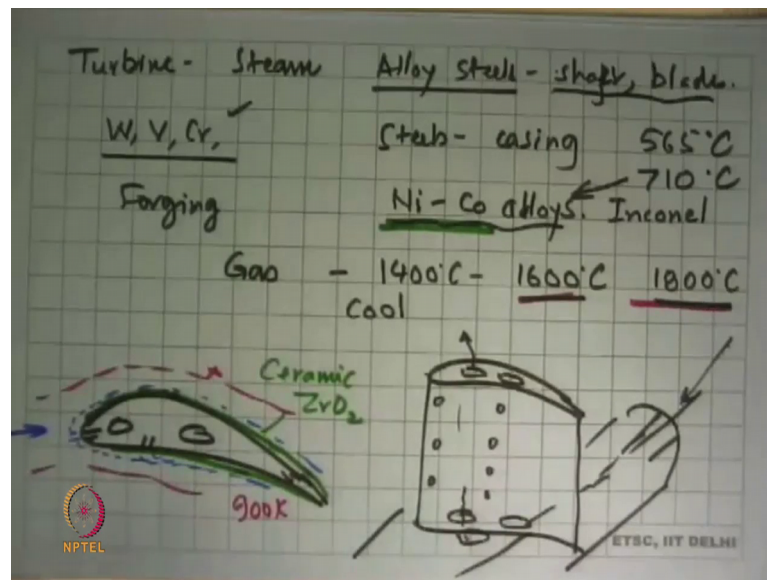 Turbine - Steam Alloy Steels - shaft, blade.
W, V, Cr, Steels - casing 565°C
710°C
Forging Ni - Co alloys. Inconel
Gas - 1400°C - 1600°C 1800°C
Cool
Ceramic
ZrO2
900K
NPTEL
ETSC, IIT DELHI